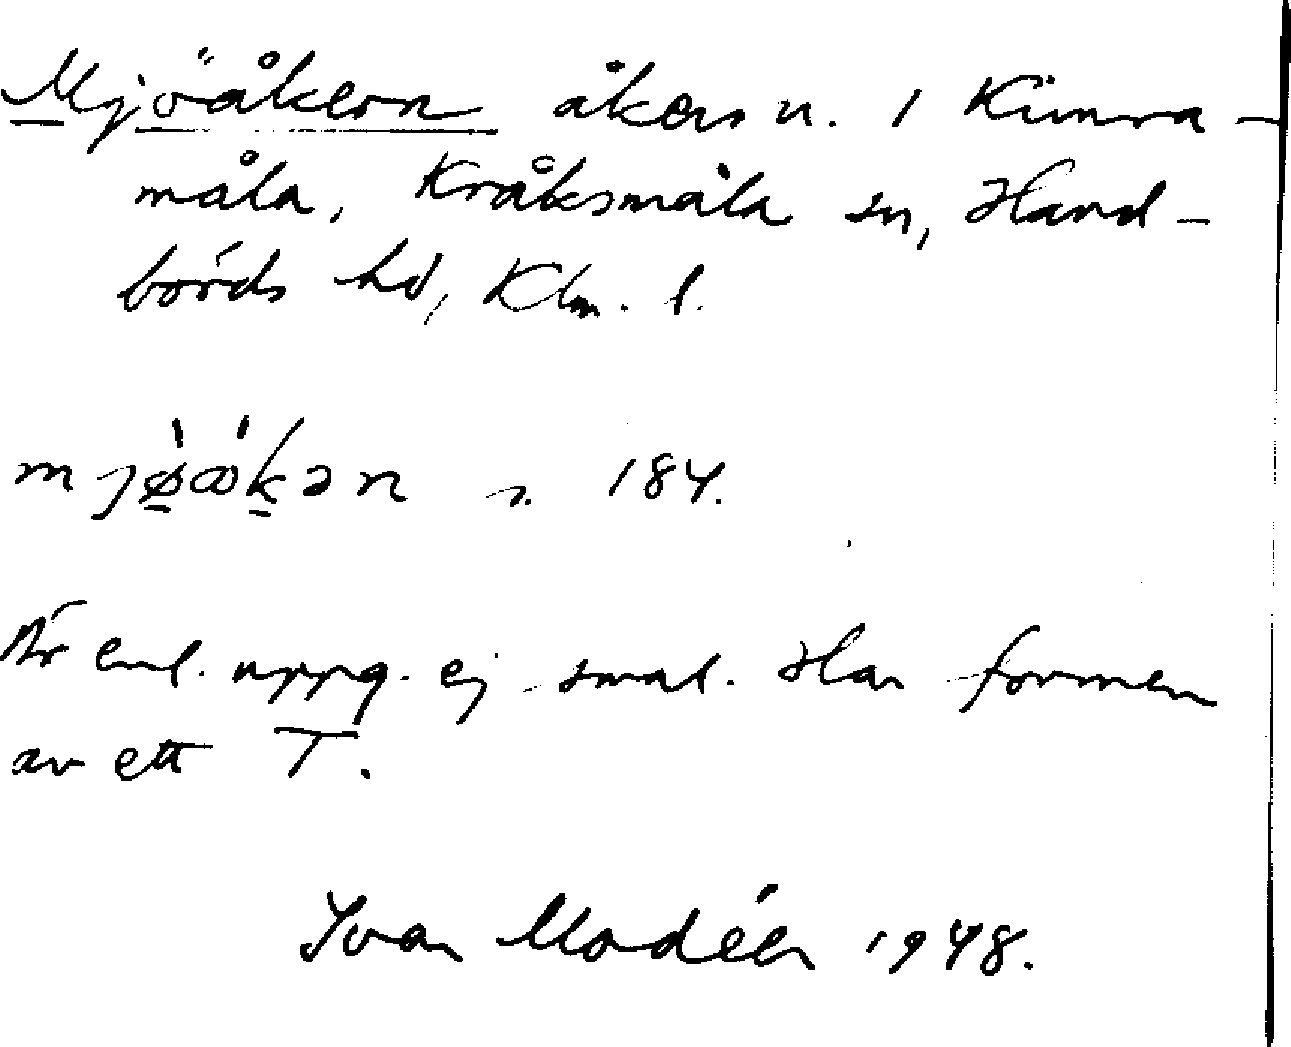 Mjöåkern åkern. i Kimra-
måla, Kråksmåla sn, Hand-
börds hd, Klm. l.
s. 184.
Är enl. uppg. ej smal. Har formen
av ett T.
Ivar Modéer 1948.